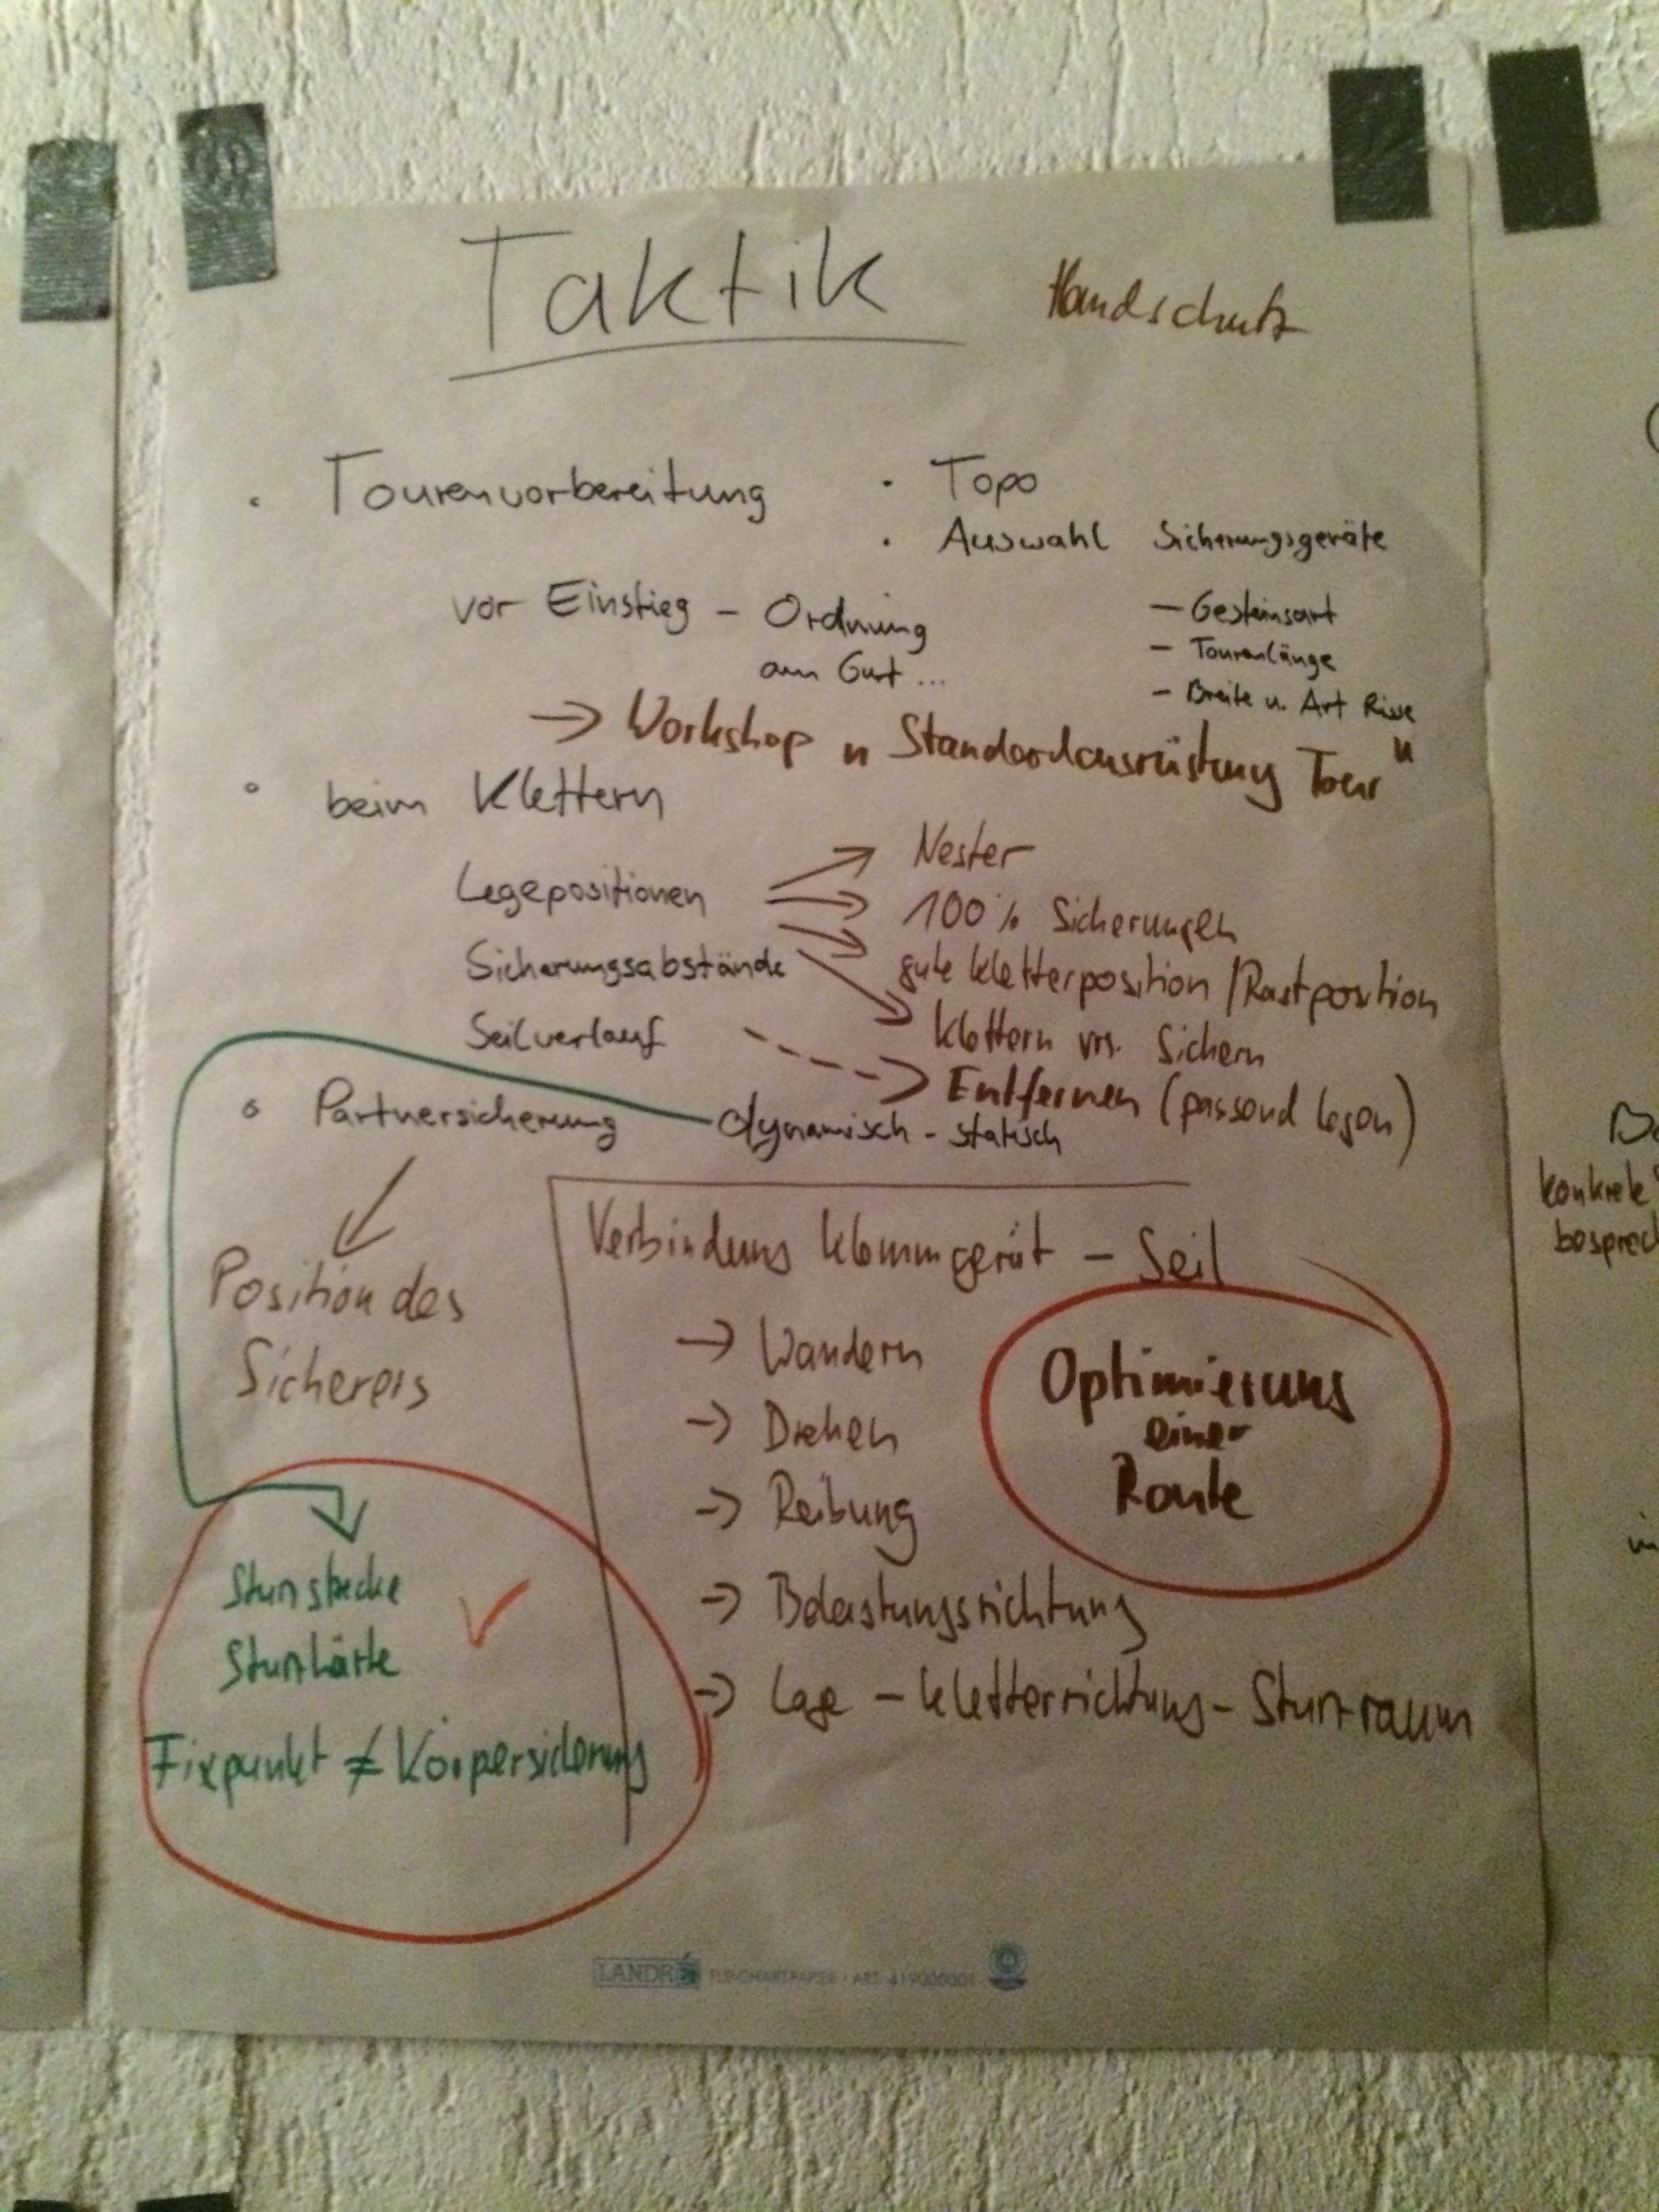 Taktik
Handschutz
• Tourenvorbereitung
• Topo
• Auswahl Sicherungsgeräte
– Gesteinsart
– Tourenlänge
– Breite u. Art Risse
vor Einstieg – Ordnung
am Gurt ...
→ Workshop "Standardausrüstung Tour"
• beim Klettern
Legepositionen
Sicherungsabstände
Seilverlauf
→ Nester
→ 100% Sicherungen
→ gute Kletterposition / Rastposition
→ Klettern vs. Sichern
--> Entfernen (passend legen)
• Partnersicherung
dynamisch - statisch
Position des
Sicherers
Verbindung Klemmgerät – Seil
→ Wandern
→ Drehen
→ Reibung
→ Belastungsrichtung
→ Lage – Kletterrichtung – Sturzraum
Optimierung
einer
Route
Sturzstrecke
Sturzhärte
✓
Fixpunkt ≠ Körpersicherung
LANDRÉ FLIPCHARTPAPIER · ART.
konkrete
besprech